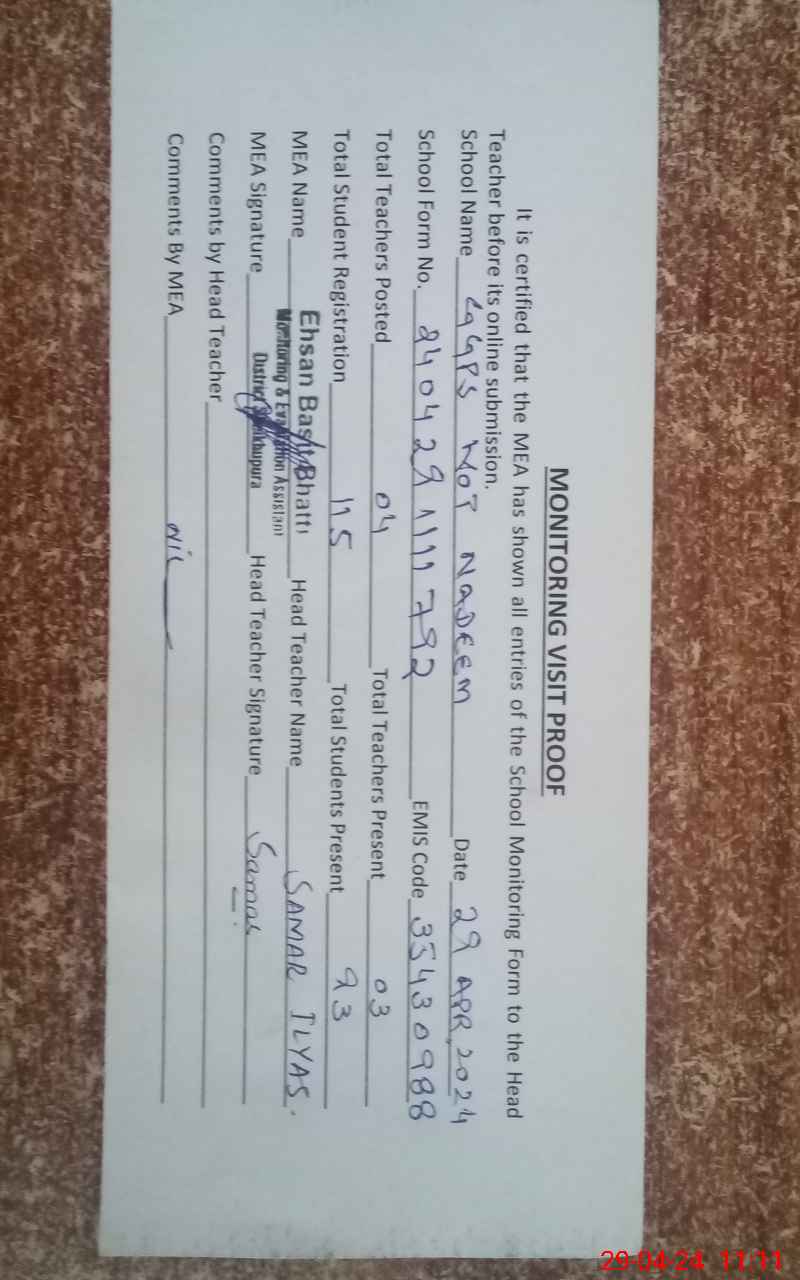 MONITORING VISIT PROOF
It is certified that the MEA has shown all entries of the School Monitoring Form to the Head
Teacher before its online submission.
School Name GGPS KOT NADEEM Date 29 APR, 2024
School Form No. 240429111792 EMIS Code 35430988
Total Teachers Posted 04 Total Teachers Present 03
Total Student Registration 115 Total Students Present 93
MEA Name Ehsan Basit Bhatti Head Teacher Name SAMAR ILYAS.
Monitoring & Evaluation Assistant
MEA Signature District Sheikhupura Head Teacher Signature Samar
Comments by Head Teacher
Comments By MEA Nil
29-04-24 11:11